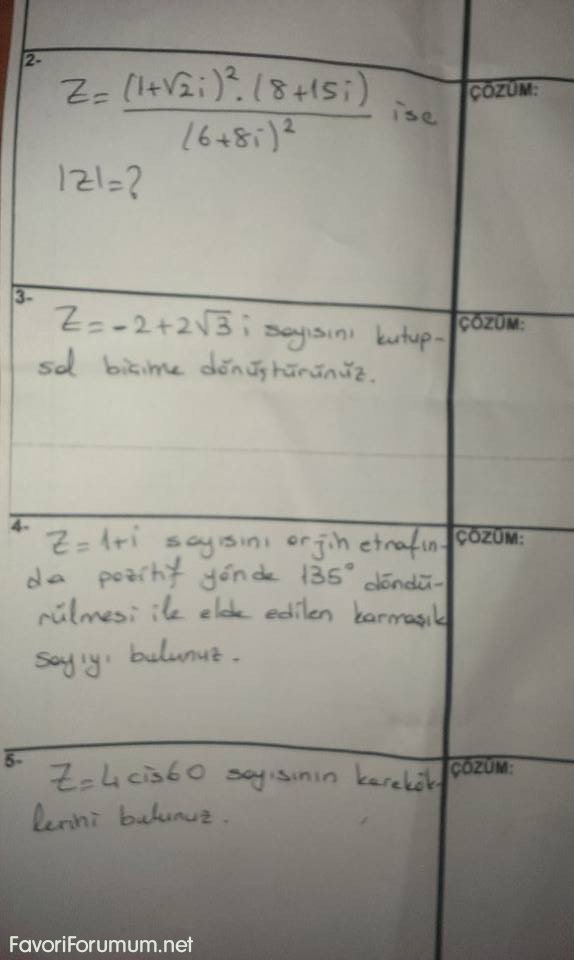 2-
Z = (1+√2i)². (8+15i) ise
(6+8i)²
|Z|=?
ÇÖZÜM:
3-
Z = -2+2√3 i sayısını kutup-
sal biçime dönüştürünüz.
ÇÖZÜM:
4-
Z = 1+i sayısını orjin etrafın-
da pozitif yönde 135° döndü-
rülmesi ile elde edilen karmaşık
sayıyı bulunuz.
ÇÖZÜM:
5-
Z = 4 cis60 sayısının karekök-
lerini bulunuz.
ÇÖZÜM:
FavoriForumum.net